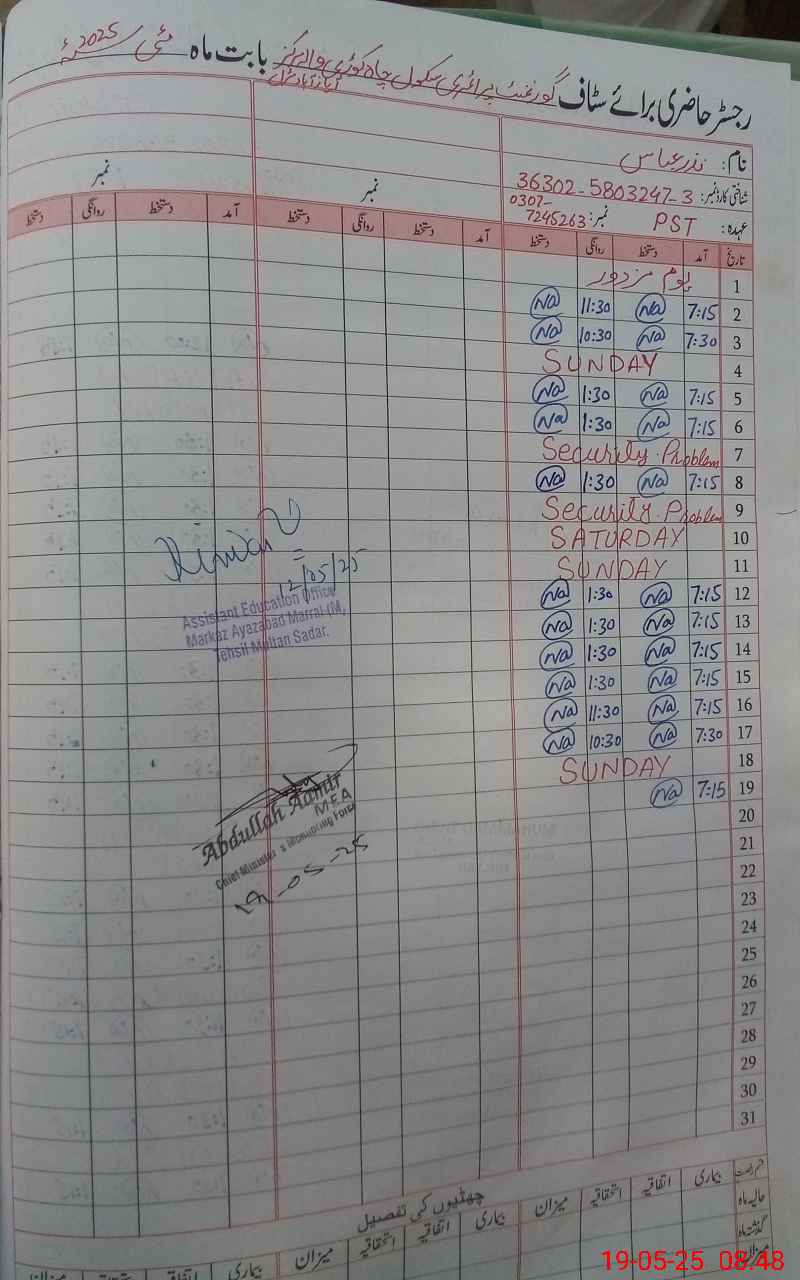 رجسٹر حاضری برائے سٹاف گورنمنٹ پرائمری سکول چاہ کوڑی والہ مرکز بابت ماہ مئی 2025ء
ایاز آباد مڑل
نام: نذر عباس
شناختی کارڈ نمبر: 36302-5803247-3
عہدہ: PST نمبر: 0307-7245263
نمبر
نمبر
تاریخ آمد دستخط روانگی دستخط آمد دستخط روانگی دستخط آمد دستخط روانگی دستخط
1 یوم مزدور
2 7:15 Na 11:30 Na
3 7:30 Na 10:30 Na
4 SUNDAY
5 7:15 Na 1:30 Na
6 7:15 Na 1:30 Na
7 Security Problem
8 7:15 Na 1:30 Na
9 Security Problem
10 SATURDAY
11 SUNDAY
12 7:15 Na 1:30 Na
13 7:15 Na 1:30 Na
14 7:15 Na 1:30 Na
15 7:15 Na 1:30 Na
16 7:15 Na 11:30 Na
17 7:30 Na 10:30 Na
18 SUNDAY
19 7:15 Na
20
21
22
23
24
25
26
27
28
29
30
31
12/05/25
Assistant Education Office
Markaz Ayazabad Marral (M,
Tehsil Multan Sadar.
Abdullah Aamir
M.E.A
Chief Minister's Monitoring Force
19-05-25
چھٹیوں کی تفصیل
بیماری اتفاقیہ استحقاقیہ میزان بیماری اتفاقیہ استحقاقیہ میزان بیماری اتفاقیہ استحقاقیہ میزان
حالیہ ماہ
گذشتہ ماہ
میزان
19-05-25 08:48